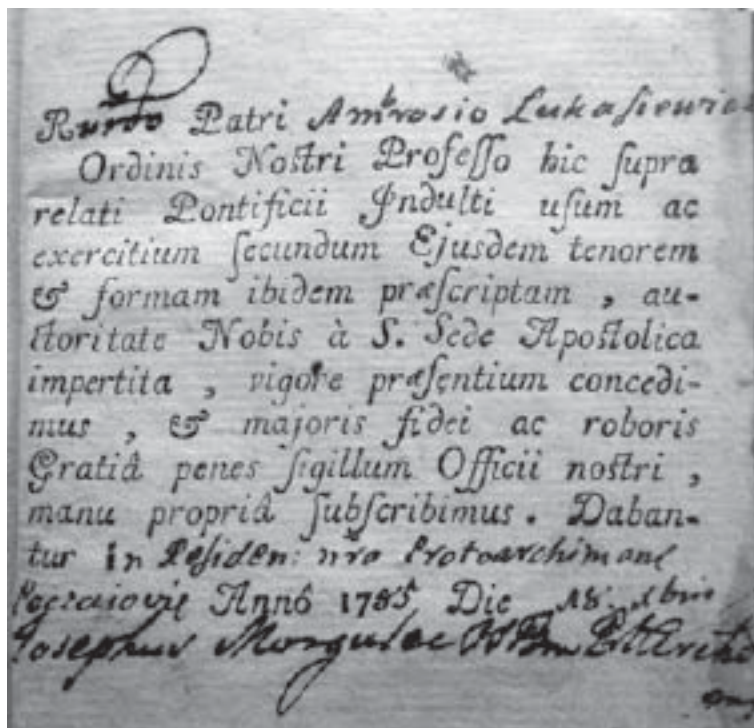 Rundo Patri Ambrosio Lukasiewic
Ordinis Noſtri Profeſſo hic ſupra
relati Pontificii Indulti uſum ac
exercitium ſecundum Ejusdem tenorem
& formam ibidem præſcriptam , au-
ctoritate Nobis à S. Sede Apoſtolica
impertita , vigore præſentium concedi-
mus , & majoris fidei ac roboris
Gratiâ penes ſigillum Officii noſtri ,
manu propriâ ſubſcribimus . Daban-
tur in Residen: nra Protoarchimand
Anno 1785 Die 18. Xbris
Josephus